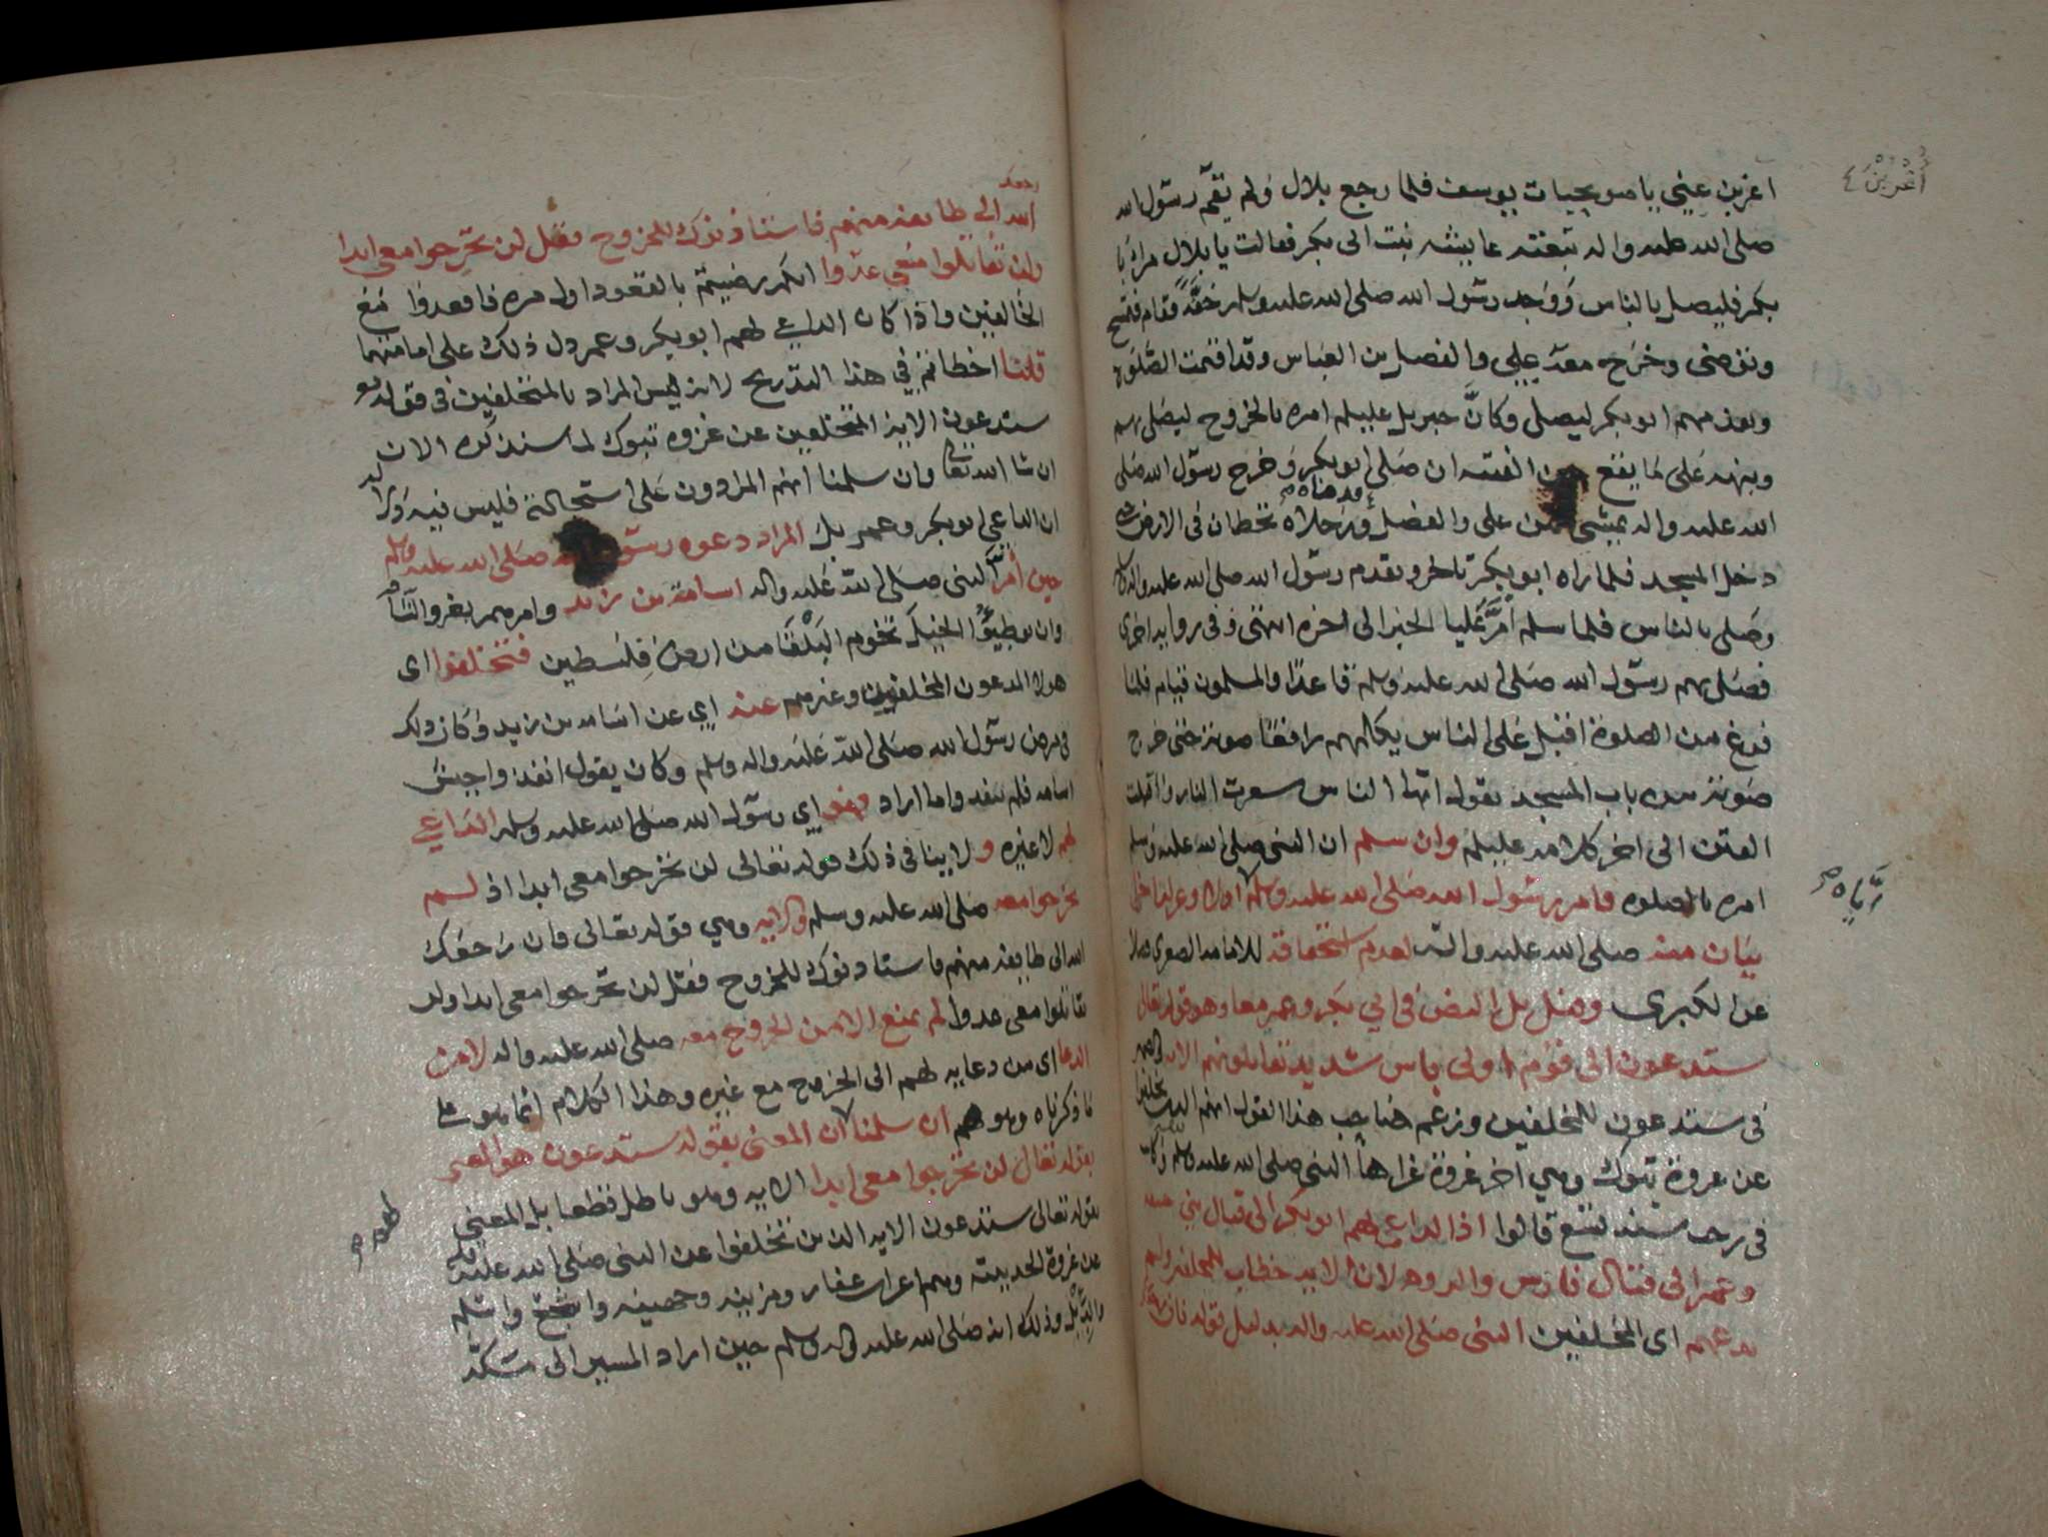 اغربن عني يا صويحبات يوسف فلما رجع بلال ولم يقم رسول الله
أُغْرُبْنَ
صلى الله عليه واله تبعته عايشه بنت ابى بكر فقالت يا بلال مر ابا
بكر فليصل بالناس ووجد رسول الله صلى الله عليه وسلم خفة فقام فتمسح
وتوضى وخرج معه علي والفضل بن العباس وقد اقيمت الصلوة
وتقدمهم ابو بكر ليصلي وكان جبريل عليلم امره بالخروج ليصلي بهم
وينبه على ما يقع من الفتنه ان صلى ابو بكر وخرج رسول الله صلى
الله عليه واله يمشي بين علي والفضل وقدماه تخطان في الارض حتى
دخل المسجد فلما راه ابو بكر تاخر وتقدم رسول الله صلى الله عليه واله
وصلى بالناس فلما سلم أمَّر عليا الخبر الى اخره انتهى وفي روايه اخرى
فصلى بهم رسول الله صلى الله عليه وسلم قاعدا والمسلمون قيام فلما
فرغ من الصلوة اقبل على الناس يكلمهم رافعا صوته حتى خرج
صوته من باب المسجد يقول ايها الناس سعرت النار واقبلت
الفتن الى اخر كلامه عليلم وان سلم ان النبي صلى الله عليه وسلم
امره بالصلوه فامر رسول الله صلى الله عليه وسلم اولا وعزله اخرا
إيَّاه
بيان منه صلى الله عليه واله لعدم استحقاقه للامامه الصغرى فضلا
عن الكبرى وقيل بل النص في ابي بكر وعمر معا وهو قوله تعالى
ستدعون الى قوم اولي باس شديد تقاتلونهم الايه والضمير
في ستدعون للمخلفين وزعم صاحب هذا القول انهم الذين تخلفوا
عن غزوة تبوك وهي اخر غزوة غزاها النبي صلى الله عليه وسلم وكانت
في رجب سنة تسع قالوا اذ الداعي لهم ابو بكر الى قتال بني حنيفه
وعمر الى قتال فارس والروم لان الايه خطاب للمخلفين ولم
يدعهم اى المخلفين النبي صلى الله عليه واله بدليل قوله فان رجعك
الله الى طايفة منهم فاستاذنوك للخروج فقل لن تخرجوا معي ابدا
ولن تقاتلوا معي عدوا انكم رضيتم بالقعود اول مره فاقعدوا مع
الخالفين واذا كان الداعي لهم ابو بكر وعمر دل ذلك على امامتهما
قلنا اخطاتم في هذا التدريج لانه ليس المراد بالمتخلفين في قوله تع
ستدعون الايه المتخلفين عن غزوه تبوك لما سنذكره الان
ان شا الله تعالى وان سلمنا انهم المرادون على استحالته فليس فيه دلاله
ان الداعي ابو بكر وعمر بل المراد دعوه رسول الله صلى الله عليه وسلم
حين أمَّر النبي صلى الله عليه واله اسامة بن زيد وامرهم بغزو الشام
وان يوطيؤا الخيل تخوم البلقا من ارض فلسطين فتخلفوا اى
هولا المدعون المخلفين وغيرهم عنه اي عن اسامه بن زيد وكان ذلك
في مرض رسول الله صلى الله عليه واله وسلم وكان يقول انفذوا جيش
اسامه فلم ينفذوا ما اراد وهو اي رسول الله صلى الله عليه وسلم الداعي
لهم لا غيره و لا ينافي ذلك قوله تعالى لن تخرجوا معي ابدا اذ لم
يخرجوا معه صلى الله عليه وسلم والايه وهي قوله تعالى فان رجعك
الله الى طايفة منهم فاستاذنوك للخروج فقل لن تخرجوا معي ابدا ولن
تقاتلوا معي عدوا لم يمنع الا من الخروج معه صلى الله عليه واله لا من
الدعا اى من دعايه لهم الى الخروج مع غيره وهذا الكلام انما هو على
ما ذكرناه وهو ان سلمنا ان المعنى بقوله ستدعون هو المعنى
بقوله تعالى لن تخرجوا معي ابدا الايه وهو باطل قطعا بل المعني
بقوله تعالى ستدعون الايه الذين تخلفوا عن النبي صلى الله عليه وسلم
عن غزوة الحديبيه وهم اعراب غفار ومزينه وجهينه واشجع واسلم
والديل وذلك انه صلى الله عليه واله وسلم حين اراد المسير الى مكة